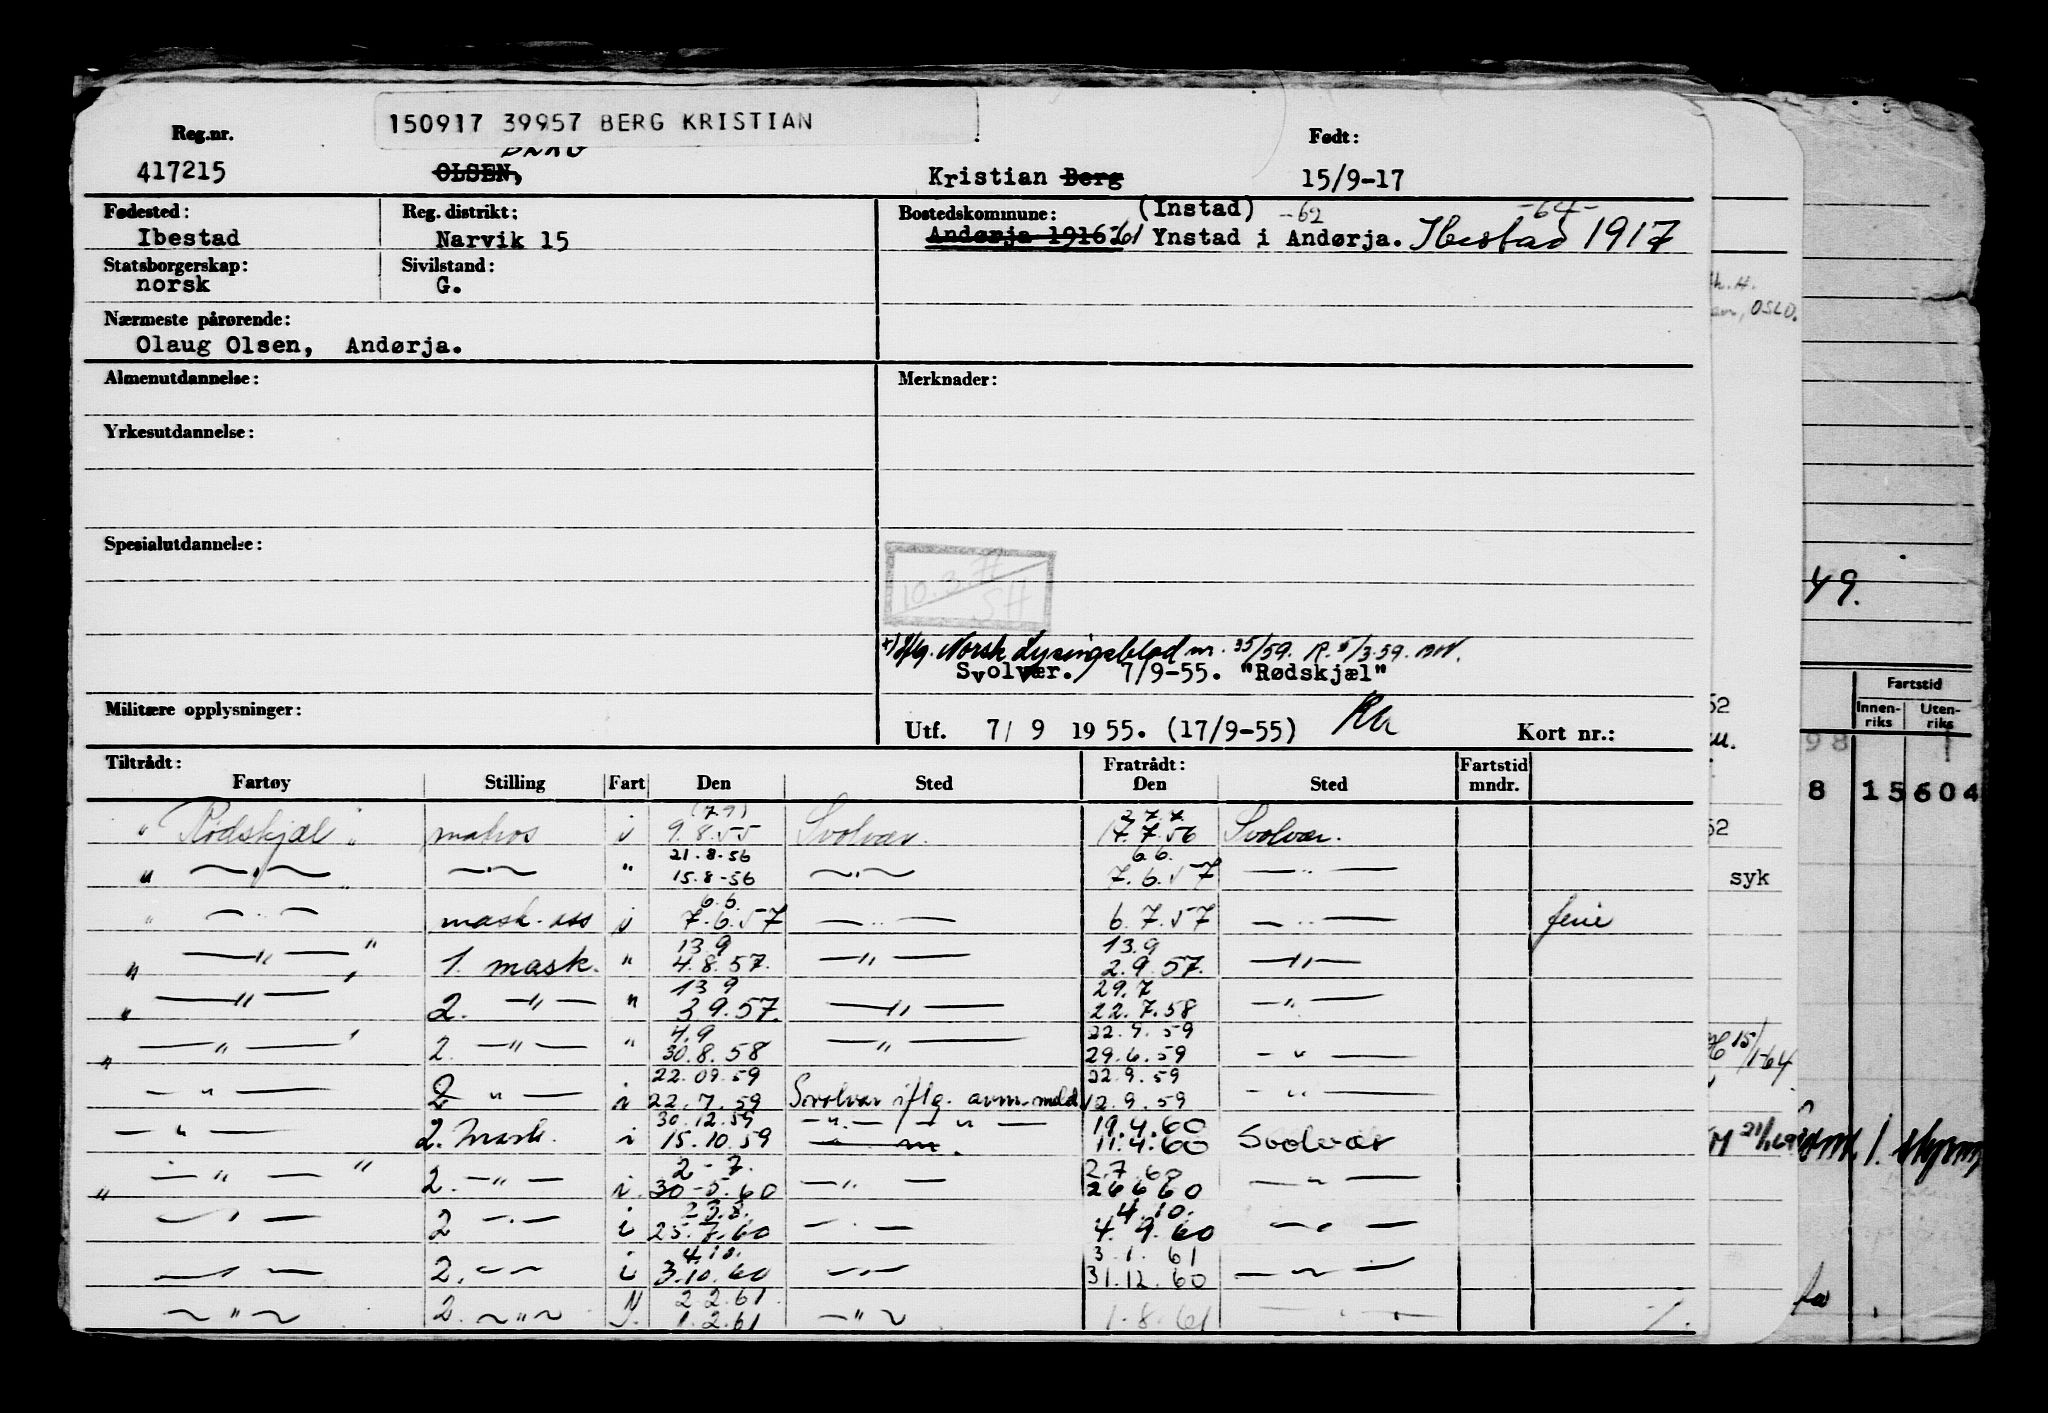 150917 39957 BERG KRISTIAN
Reg.nr. Født:
BERG
417215 OLSEN, Kristian Berg 15/9-17
Fødested: Reg. distrikt: Bostedskommune: (Instad) -62 -64-
Ibestad Narvik 15 Andørja 1916 -61 Ynstad i Andørja. Ibestad 1917
Statsborgerskap: Sivilstand:
norsk G.
Nærmeste pårørende:
Olaug Olsen, Andørja.
Almenutdannelse: Merknader:
Yrkesutdannelse:
Spesialutdannelse:
10.3.71
SH
x) Iflg. Norsk Lysingsblad nr. 35/59. R. 5/3.59.
Svolvær. 7/9-55. "Rødskjæl"
Militære opplysninger: Utf. 7/ 9 1955. (17/9-55) Kort nr.:
Tiltrådt: Fratrådt: Fartstid
Fartøy Stilling Fart Den Sted Den Sted mndr.
(7.9) 27.7.
" Rødskjæl " matros i 9.8.55 Svolvær. 17.7.56 Svolvær.
21.8-56 6.6.
" — " — — " — " 15.8-56 — " — 7.6.57 — " —
6.6.
" — " — mask. ass i 7.6.57 — " — 6.7.57 — " — ferie
13.9 13.9
" — " — " 1. mask. " 4.8.57. — " — 2.9.57. — " —
13 9 29.7
" — " — " 2. — " — " 3 9.57. — " — 22.7.58 — " —
4.9 22.9.59
" — " — " 2. — " — " 30.8.58 — " — 29.6.59 — " —
22.09.59 22.9.59
— " — 2 — " — i 22.7.59 Svolvær iflg. avm. meld. 12.9.59 — " —
30.12.59 — " — " — 19.4.60
— " — 2. Mask. i 15.10.59 — " — 11.4.60 Svolvær
2-7. 2.7.60
" — " — " 2. — " — i. 30-5.60 — " — 26 6 60 — " —
23.8. 4.10.
— " — 2 — " — i 25.7.60 — " — 4.9.60 — " —
4.10. 3.1.61
— " — 2. — " — i 3.10.60 — " — 31.12.60 — " —
2.2.61
— " — 2. — " — 1.2.61 — " — 1.8.61 — " —
OSLO.
49.
Fartstid
Innen-riks Uten-riks
52
98
8 15 604
52
syk
15/1-64